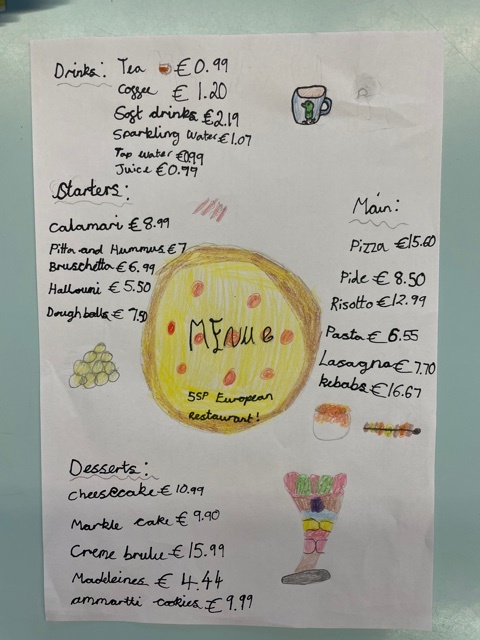 Drinks: Tea €0.99
Coffee € 1.20
Soft drinks €2.19
Sparkling Water €1.07
Tap water €0.99
Juice €0.99
Starters:
Calamari € 8.99
Pitta and Hummus €7
Bruschetta € 6.99
Halloumi € 5.50
Dough balls € 7.50
Main:
Pizza €15.60
Pide € 8.50
Risotto €12.99
Pasta € 6.55
Lasagna € 7.70
Kebabs €16.67
MENUE
5SP European
restaurant!
Desserts:
Cheesecake € 10.99
Markle cake € 9.90
Creme brulu € 15.99
Madeleines € 4.44
ammartti cookies € 9.99